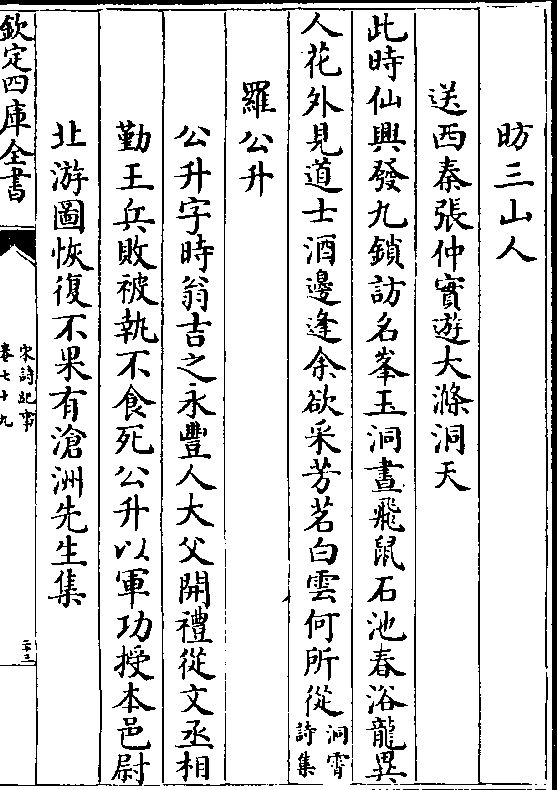 昉三山人
送西秦張仲實遊大滌洞天
此時仙興發九鎖訪名峯玉洞晝飛鼠石池春浴龍異
人花外見道士酒邊逢余欲采芳茗白雲何所從洞霄
詩集
羅公升
公升字時翁吉之永豐人大父開禮從文丞相
勤王兵敗被執不食死公升以軍功授本邑尉
北游圖恢復不果有滄洲先生集
欽定四庫全書
宋詩紀事
卷七十九
二十三